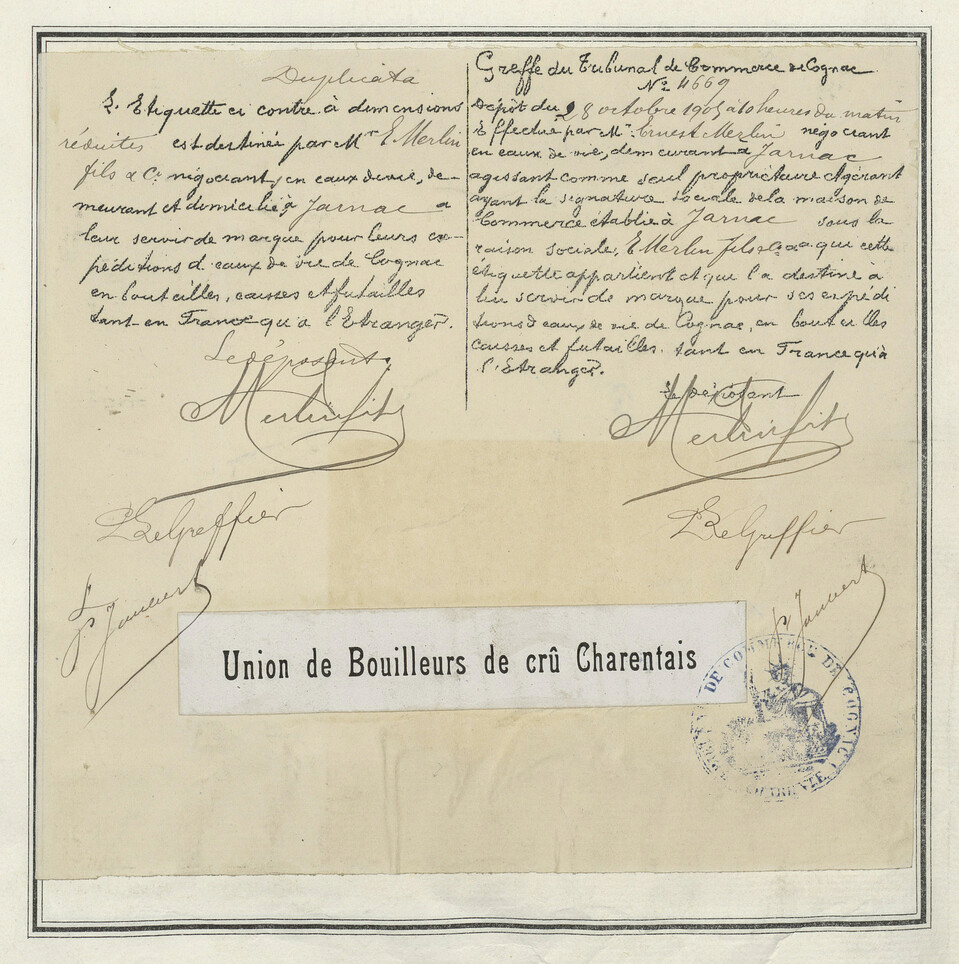 Duplicata
L'Etiquette ci contre à dimensions
réduites est destinée par Mr E. Merlin
fils & Cie négociant, en eaux de vie, de-
meurant et domicilié à Jarnac a
leur servir de marque pour leurs ex-
péditions d'eaux de vie de Cognac
en bouteilles, caisses et futailles
tant en France qu'a l'Etranger.
Le déposant,
Merlin fils
Le Greffier
Joubert
Greffe du Tribunal de Commerce de Cognac
No 4669
Dépôt du 28 octobre 1905 à 10 heures du matin
Effectué par Mr Ernest Merlin négociant
en eaux de vie, demeurant a Jarnac
agissant comme seul propriétaire et gérant
ayant la signature sociale de la maison de
Commerce établie à Jarnac sous la
raison sociale, E Merlin fils & Cie qui cette
étiquette appartient et qui l'a destiné à
lui servir de marque pour ses expédi
tions d'eaux de vie de Cognac, en bouteilles
caisses et futailles, tant en France qu'à
l'Etranger.
Le déposant
Merlin fils
Le Greffier
Joubert
Union de Bouilleurs de crû Charentais
DE COMMERCE DE COGNAC